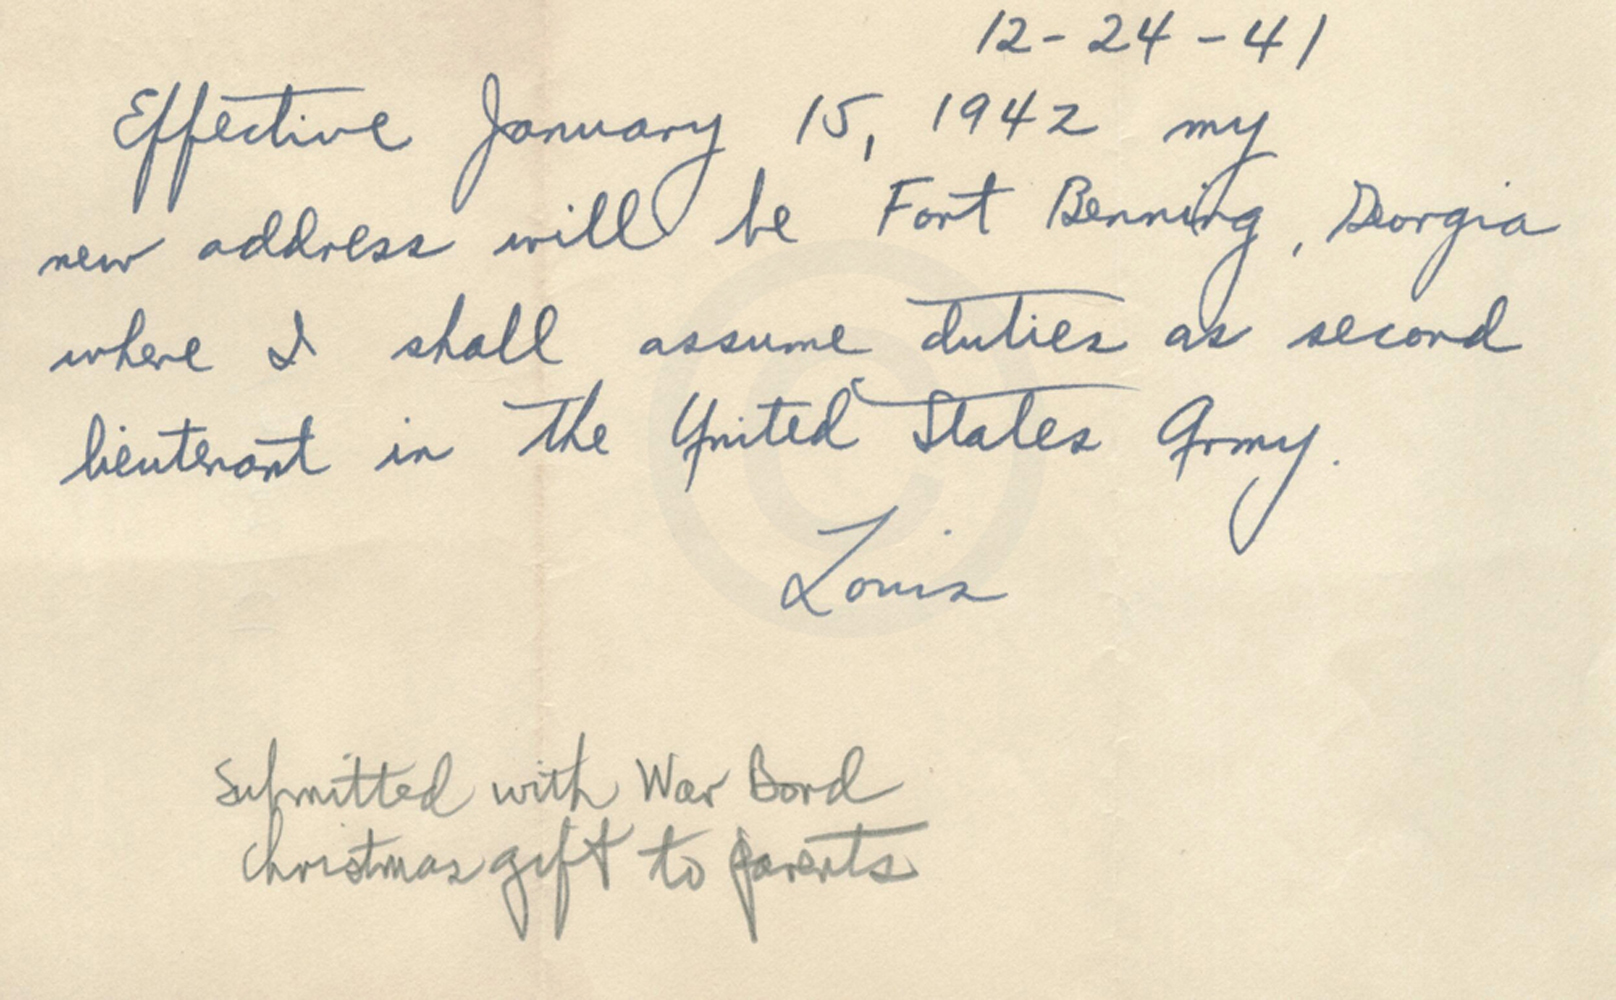 12-24-41
Effective January 15, 1942 my
new address will be Fort Benning, Georgia
where I shall assume duties as second
lieutenant in the United States Army.
Louis
Submitted with War Bond
Christmas gift to parents